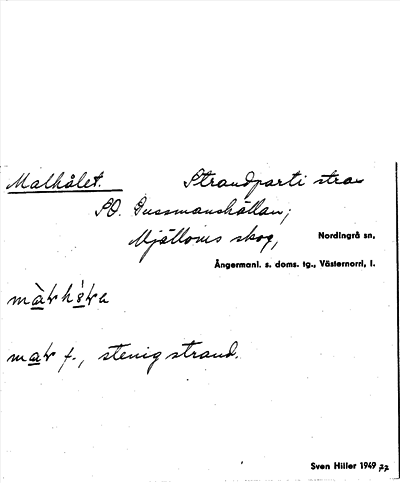 Malhålet. Strandparti strax
SO. Gussmanshällan;
Mjälloms skog, Nordingrå sn,
Ångermanl. s. doms. tg., Västernorrl. l.
f., stenig strand.
Sven Hiller 1949